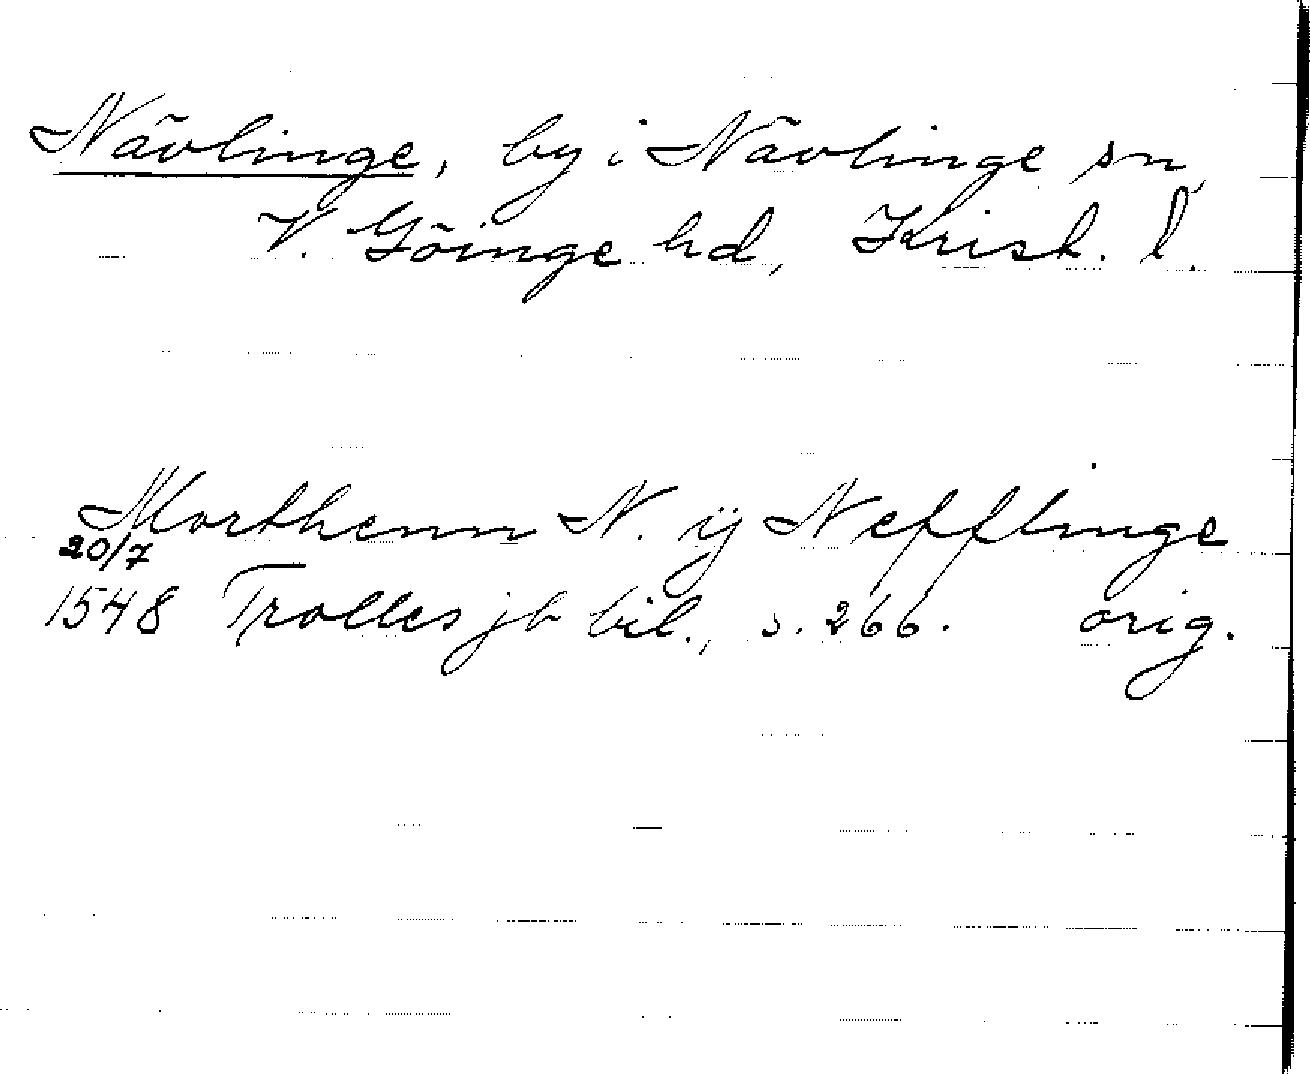 Nävlinge, by i Nävlinge sn,
V. Göinge hd, Krist. l.
Morthenn N. ij Nefflinge
20/7
1548 Trolles jb bil., s. 266. orig.